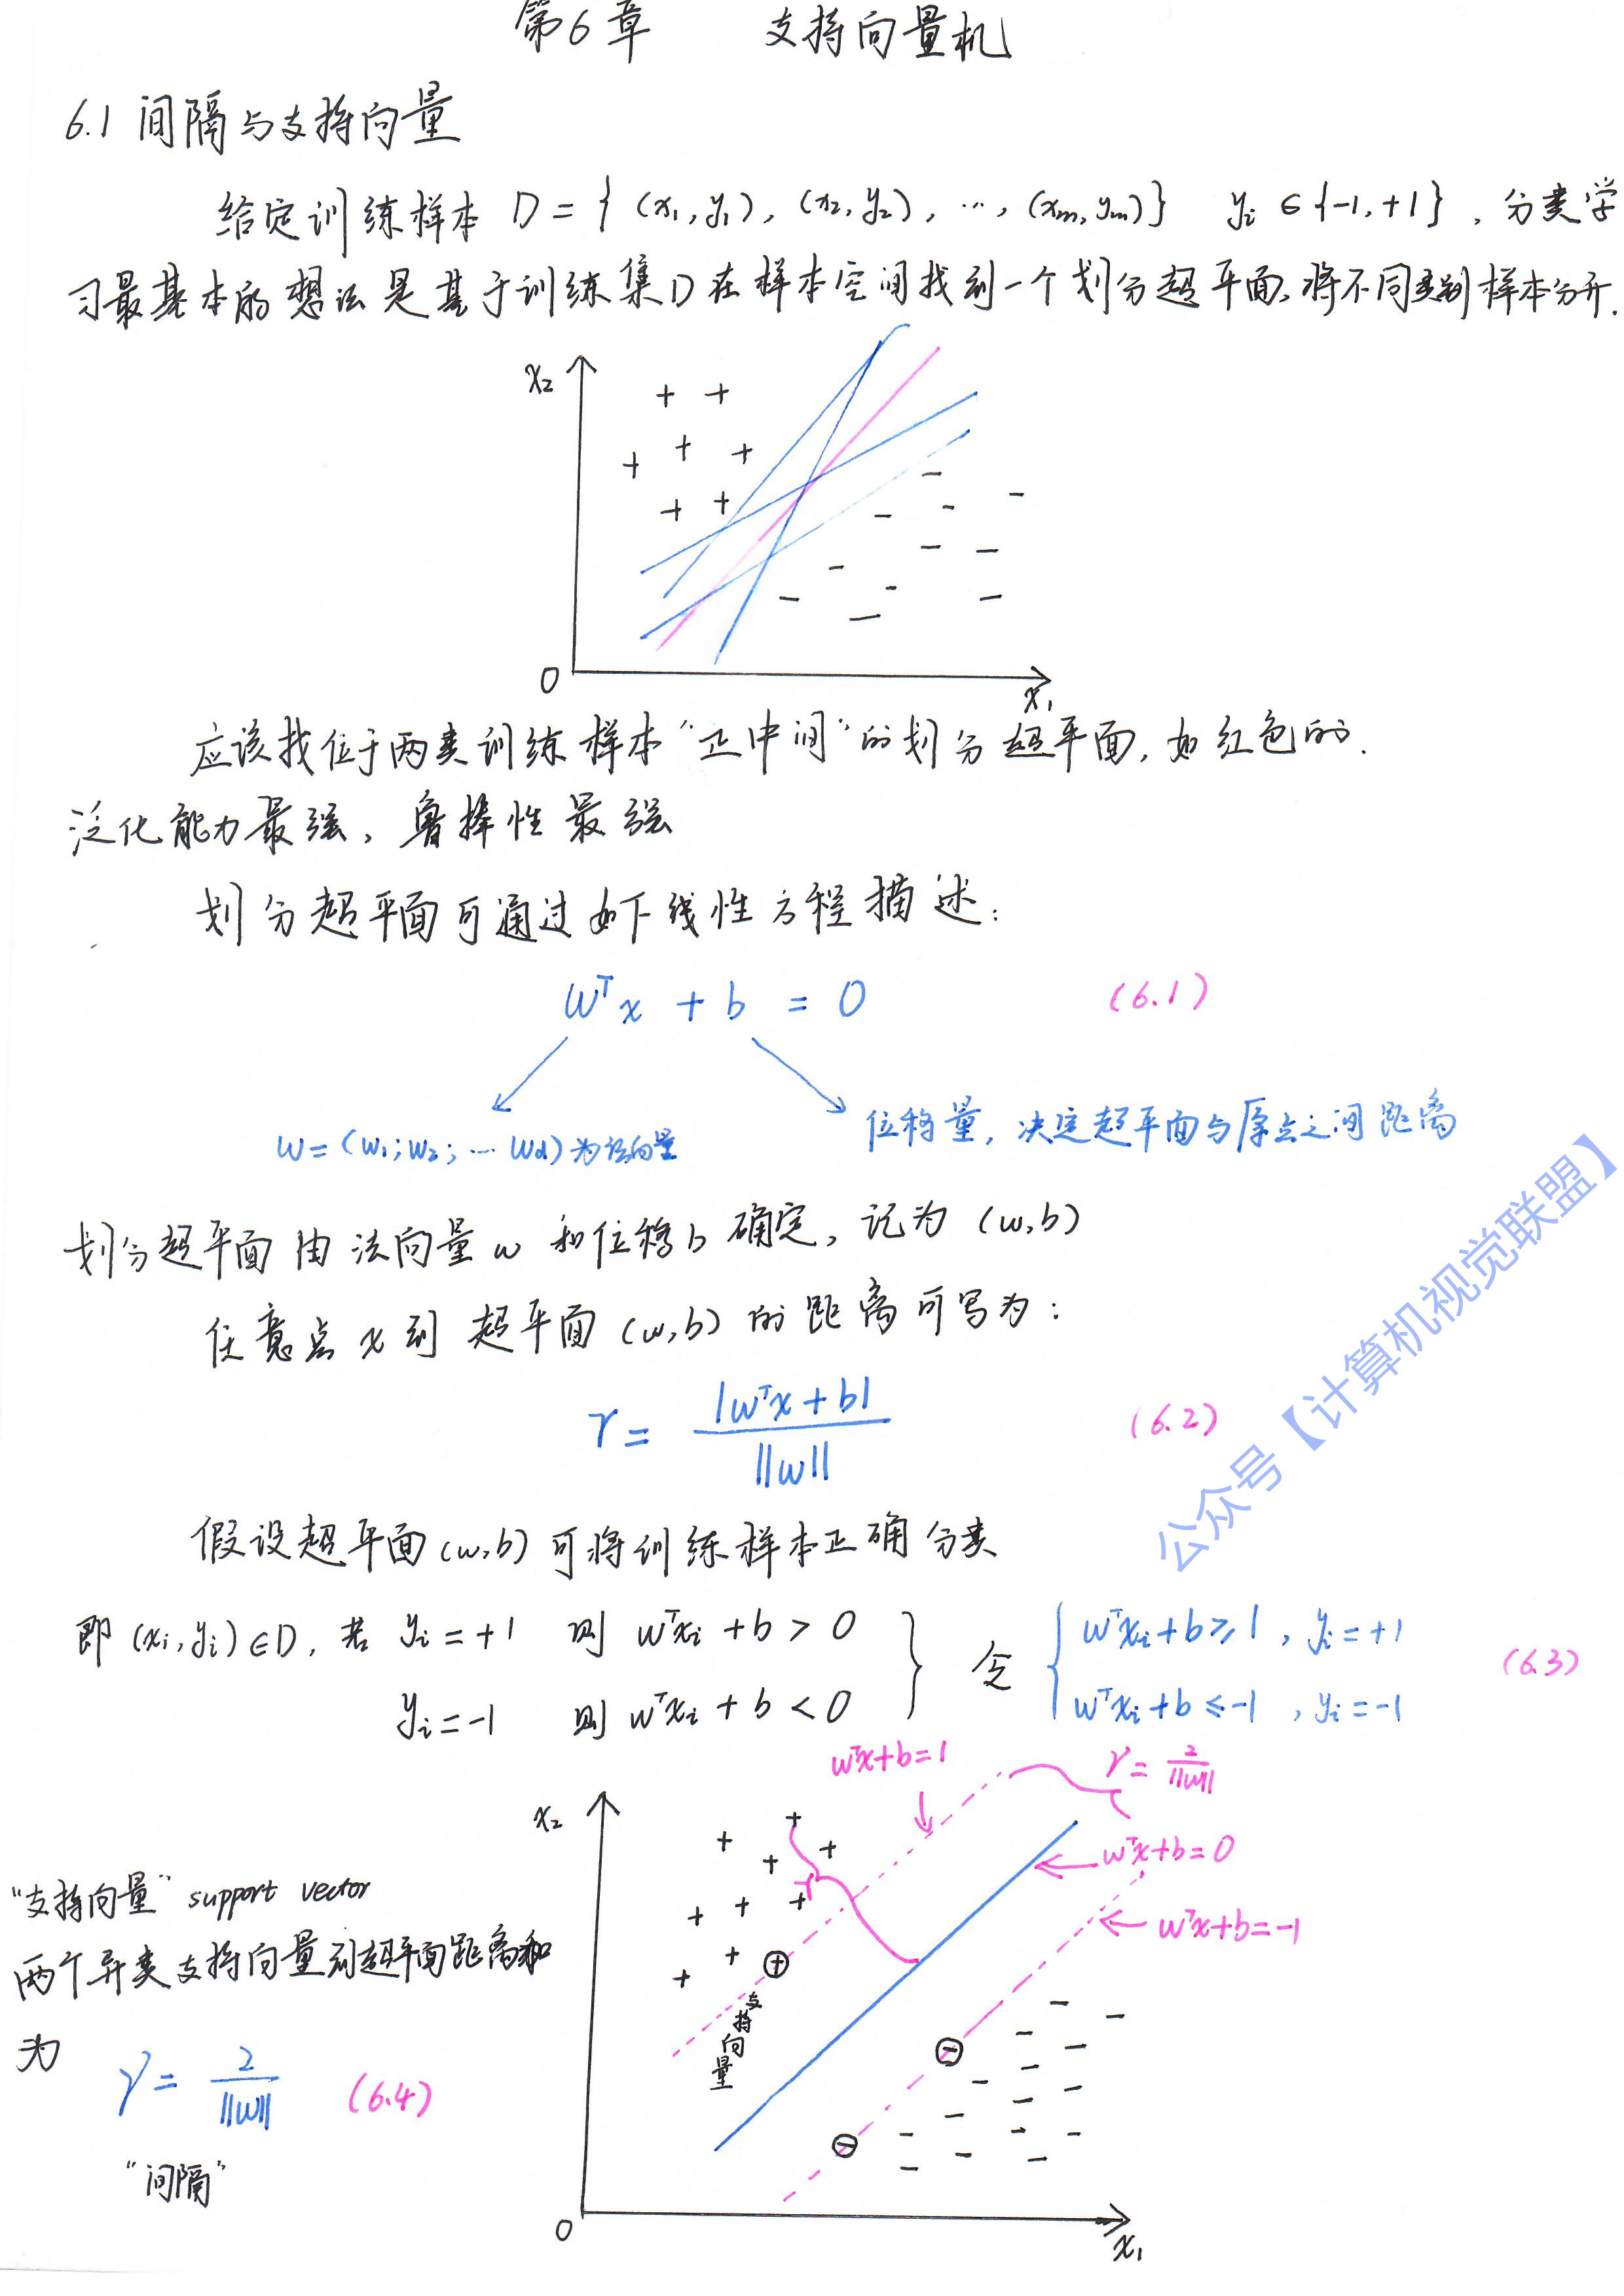 第6章 支持向量机
6.1 间隔与支持向量
给定训练样本 D = { (x₁, y₁), (x₂, y₂), …, (xₘ, yₘ)} yᵢ ∈ {-1, +1} , 分类学
习最基本的想法是基于训练集D在样本空间找到一个划分超平面,将不同类别样本分开.
x₂
0
x₁
应该找位于两类训练样本“正中间”的划分超平面, 如红色的.
泛化能力最强, 鲁棒性最强
划分超平面可通过如下线性方程描述:
wᵀx + b = 0 (6.1)
w = (w₁; w₂; … wd) 为法向量
位移量, 决定超平面与原点之间距离
划分超平面由法向量w和位移b确定, 记为 (w, b)
任意点x到超平面 (w, b) 的距离可写为:
r = |wᵀx + b| / ||w|| (6.2)
假设超平面 (w, b) 可将训练样本正确分类
即 (xᵢ, yᵢ) ∈ D, 若 yᵢ = +1 则 wᵀxᵢ + b > 0 } 令 { wᵀxᵢ + b ≥ 1 , yᵢ = +1 (6.3)
yᵢ = -1 则 wᵀxᵢ + b < 0 wᵀxᵢ + b ≤ -1 , yᵢ = -1
wᵀx + b = 1
γ = 2 / ||w||
x₂
wᵀx + b = 0
wᵀx + b = -1
r
支持向量
0
x₁
“支持向量” support vector
两个异类支持向量到超平面距离和
为
γ = 2 / ||w|| (6.4)
“间隔”
公众号【计算机视觉联盟】